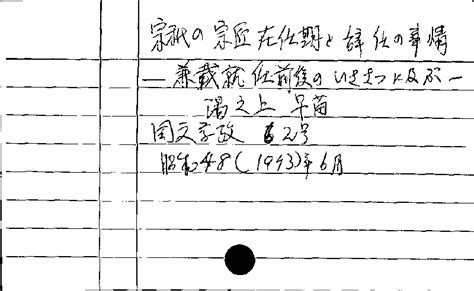 宗祇の宗匠在任期と辞任の事情
―兼載就任前後のいきさつに及ぶ―
湯之上 早苗
国文学攷 62号
昭和48(1973)年6月